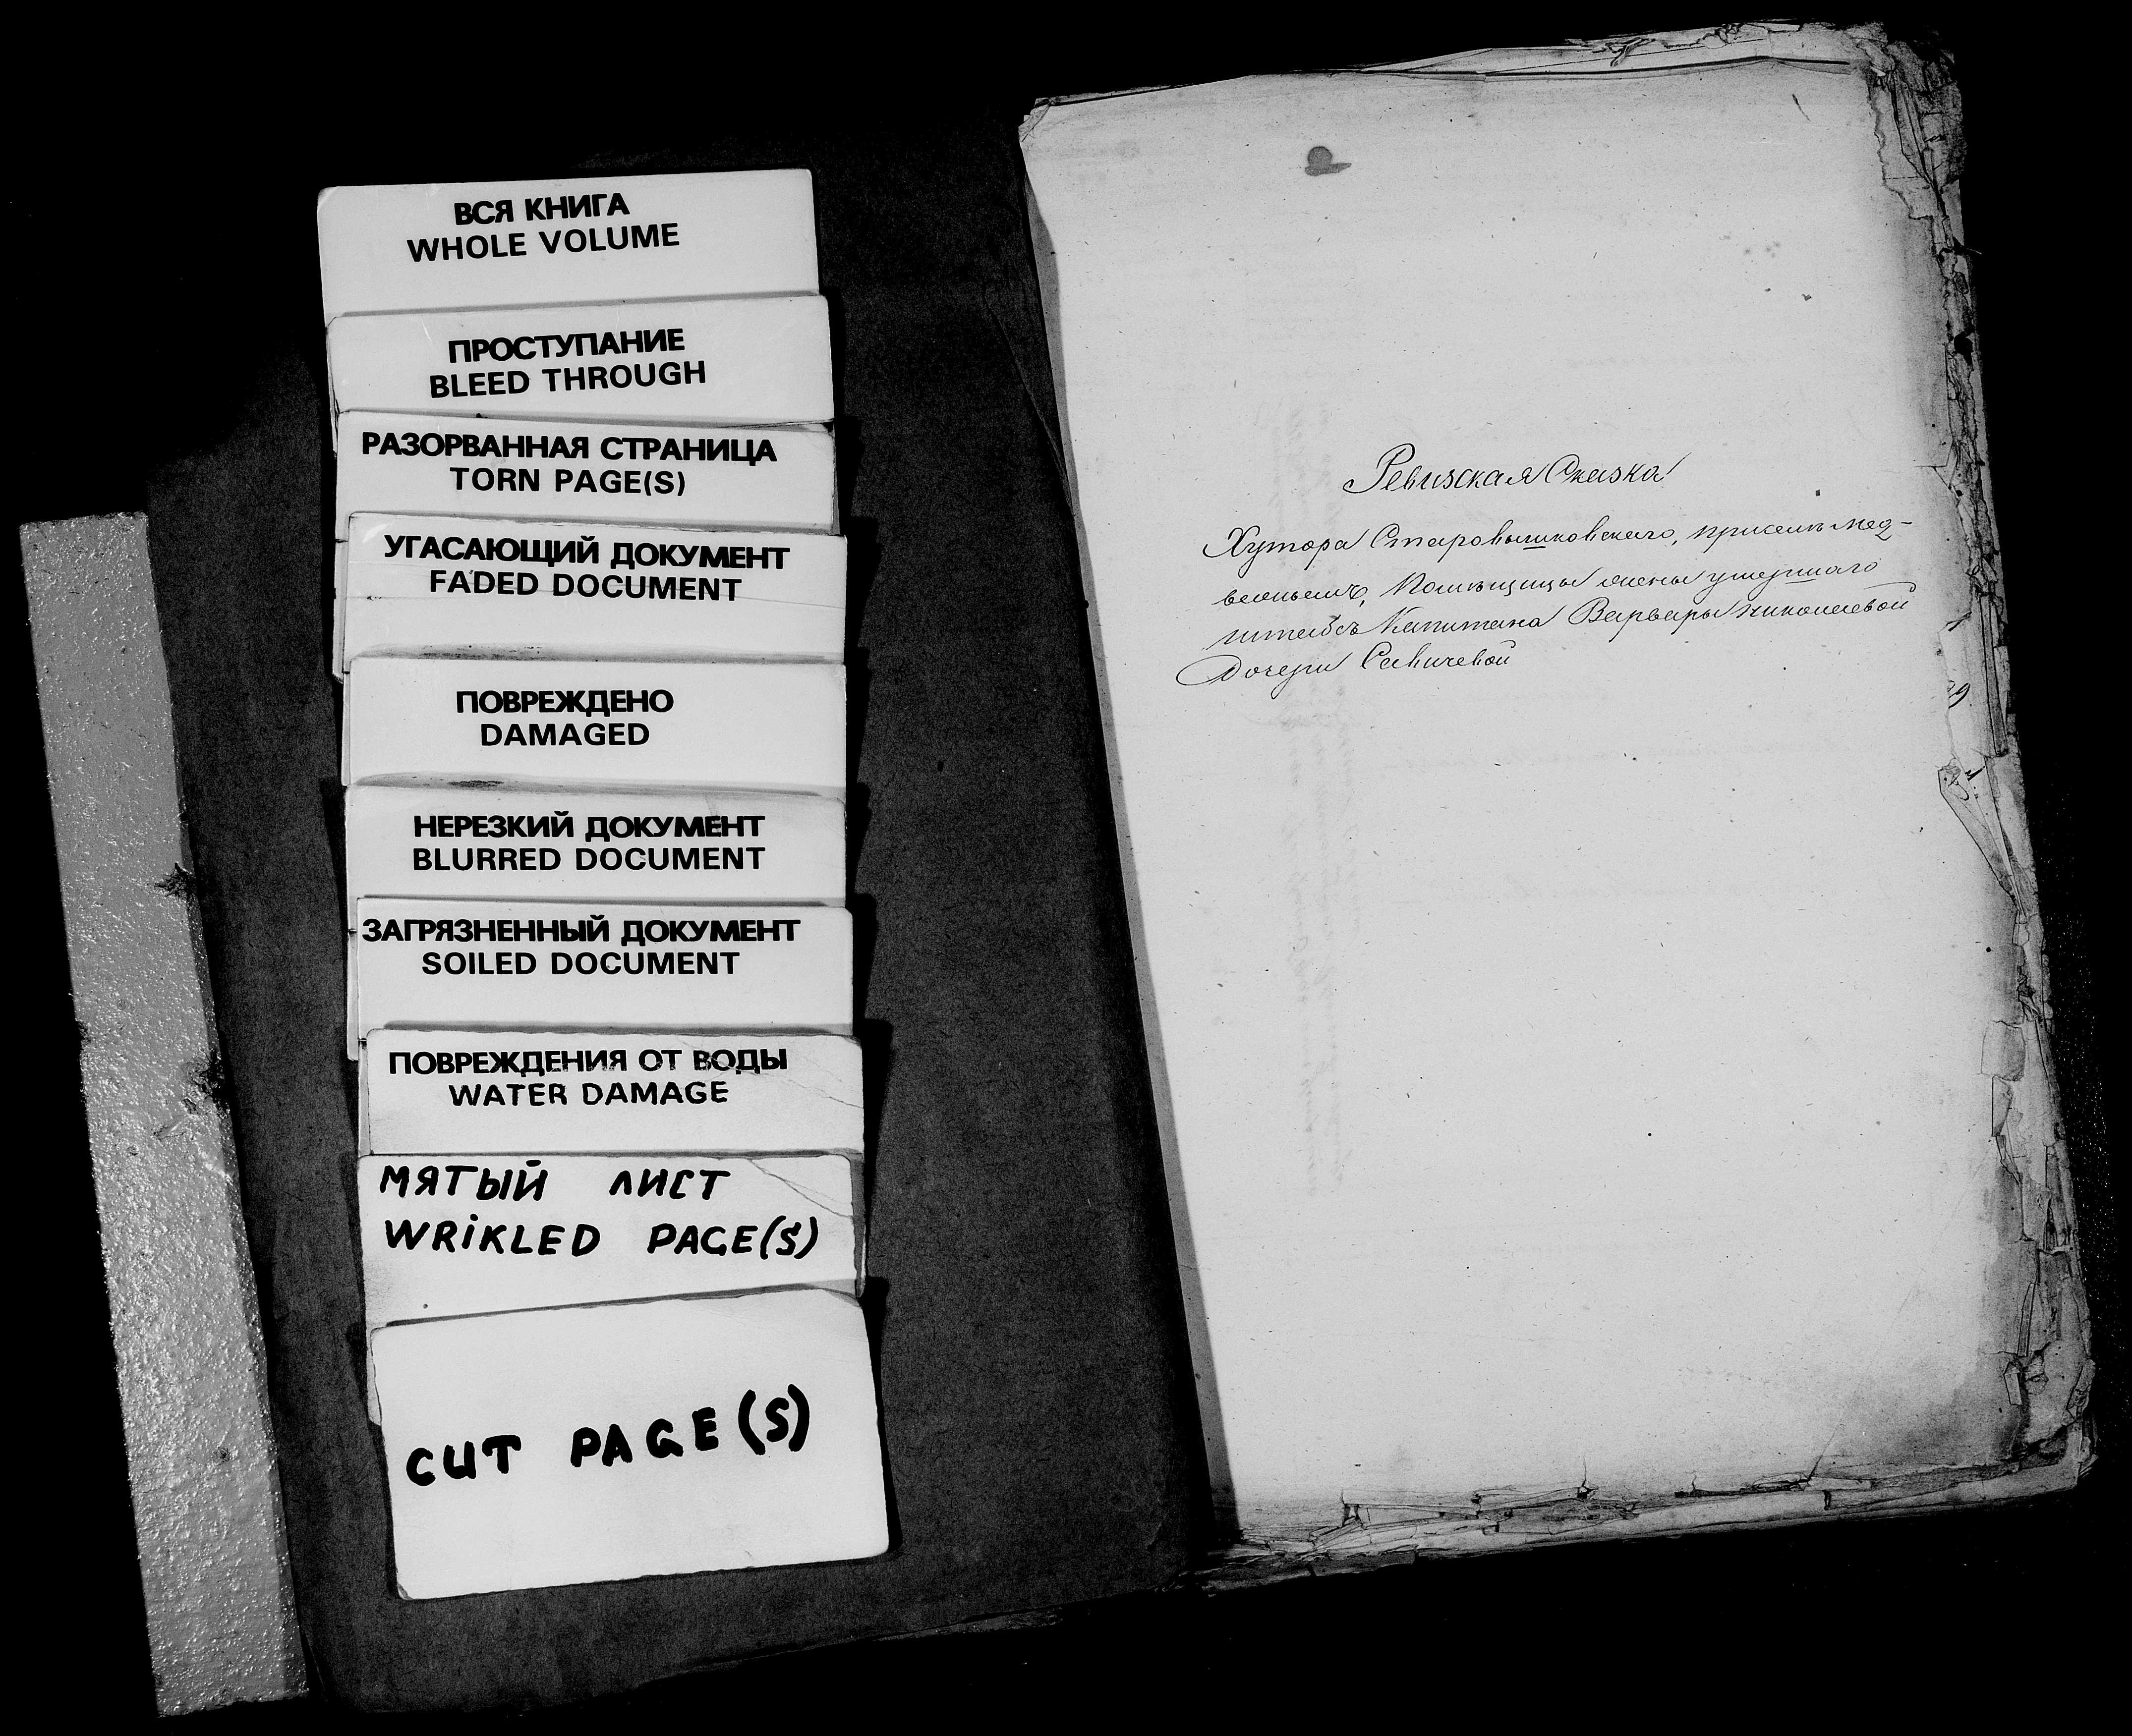 ВСЯ КНИГА
WHOLE VOLUME
ПРОСТУПАНИЕ
BLEED THROUGH
РАЗОРВАННАЯ СТРАНИЦА
TORN PAGE(S)
УГАСАЮЩИЙ ДОКУМЕНТ
FADED DOCUMENT
ПОВРЕЖДЕНО
DAMAGED
НЕРЕЗКИЙ ДОКУМЕНТ
BLURRED DOCUMENT
ЗАГРЯЗНЕННЫЙ ДОКУМЕНТ
SOILED DOCUMENT
ПОВРЕЖДЕНИЯ ОТ ВОДЫ
WATER DAMAGE
МЯТЫЙ ЛИСТ
WRIKLED PAGE(S)
CUT PAGE(S)
Ревизская Сказка
Хутора
Помѣщицы жены умершаго
штабсъ Капитана Варвары Николаевой
Дочери Савичевой